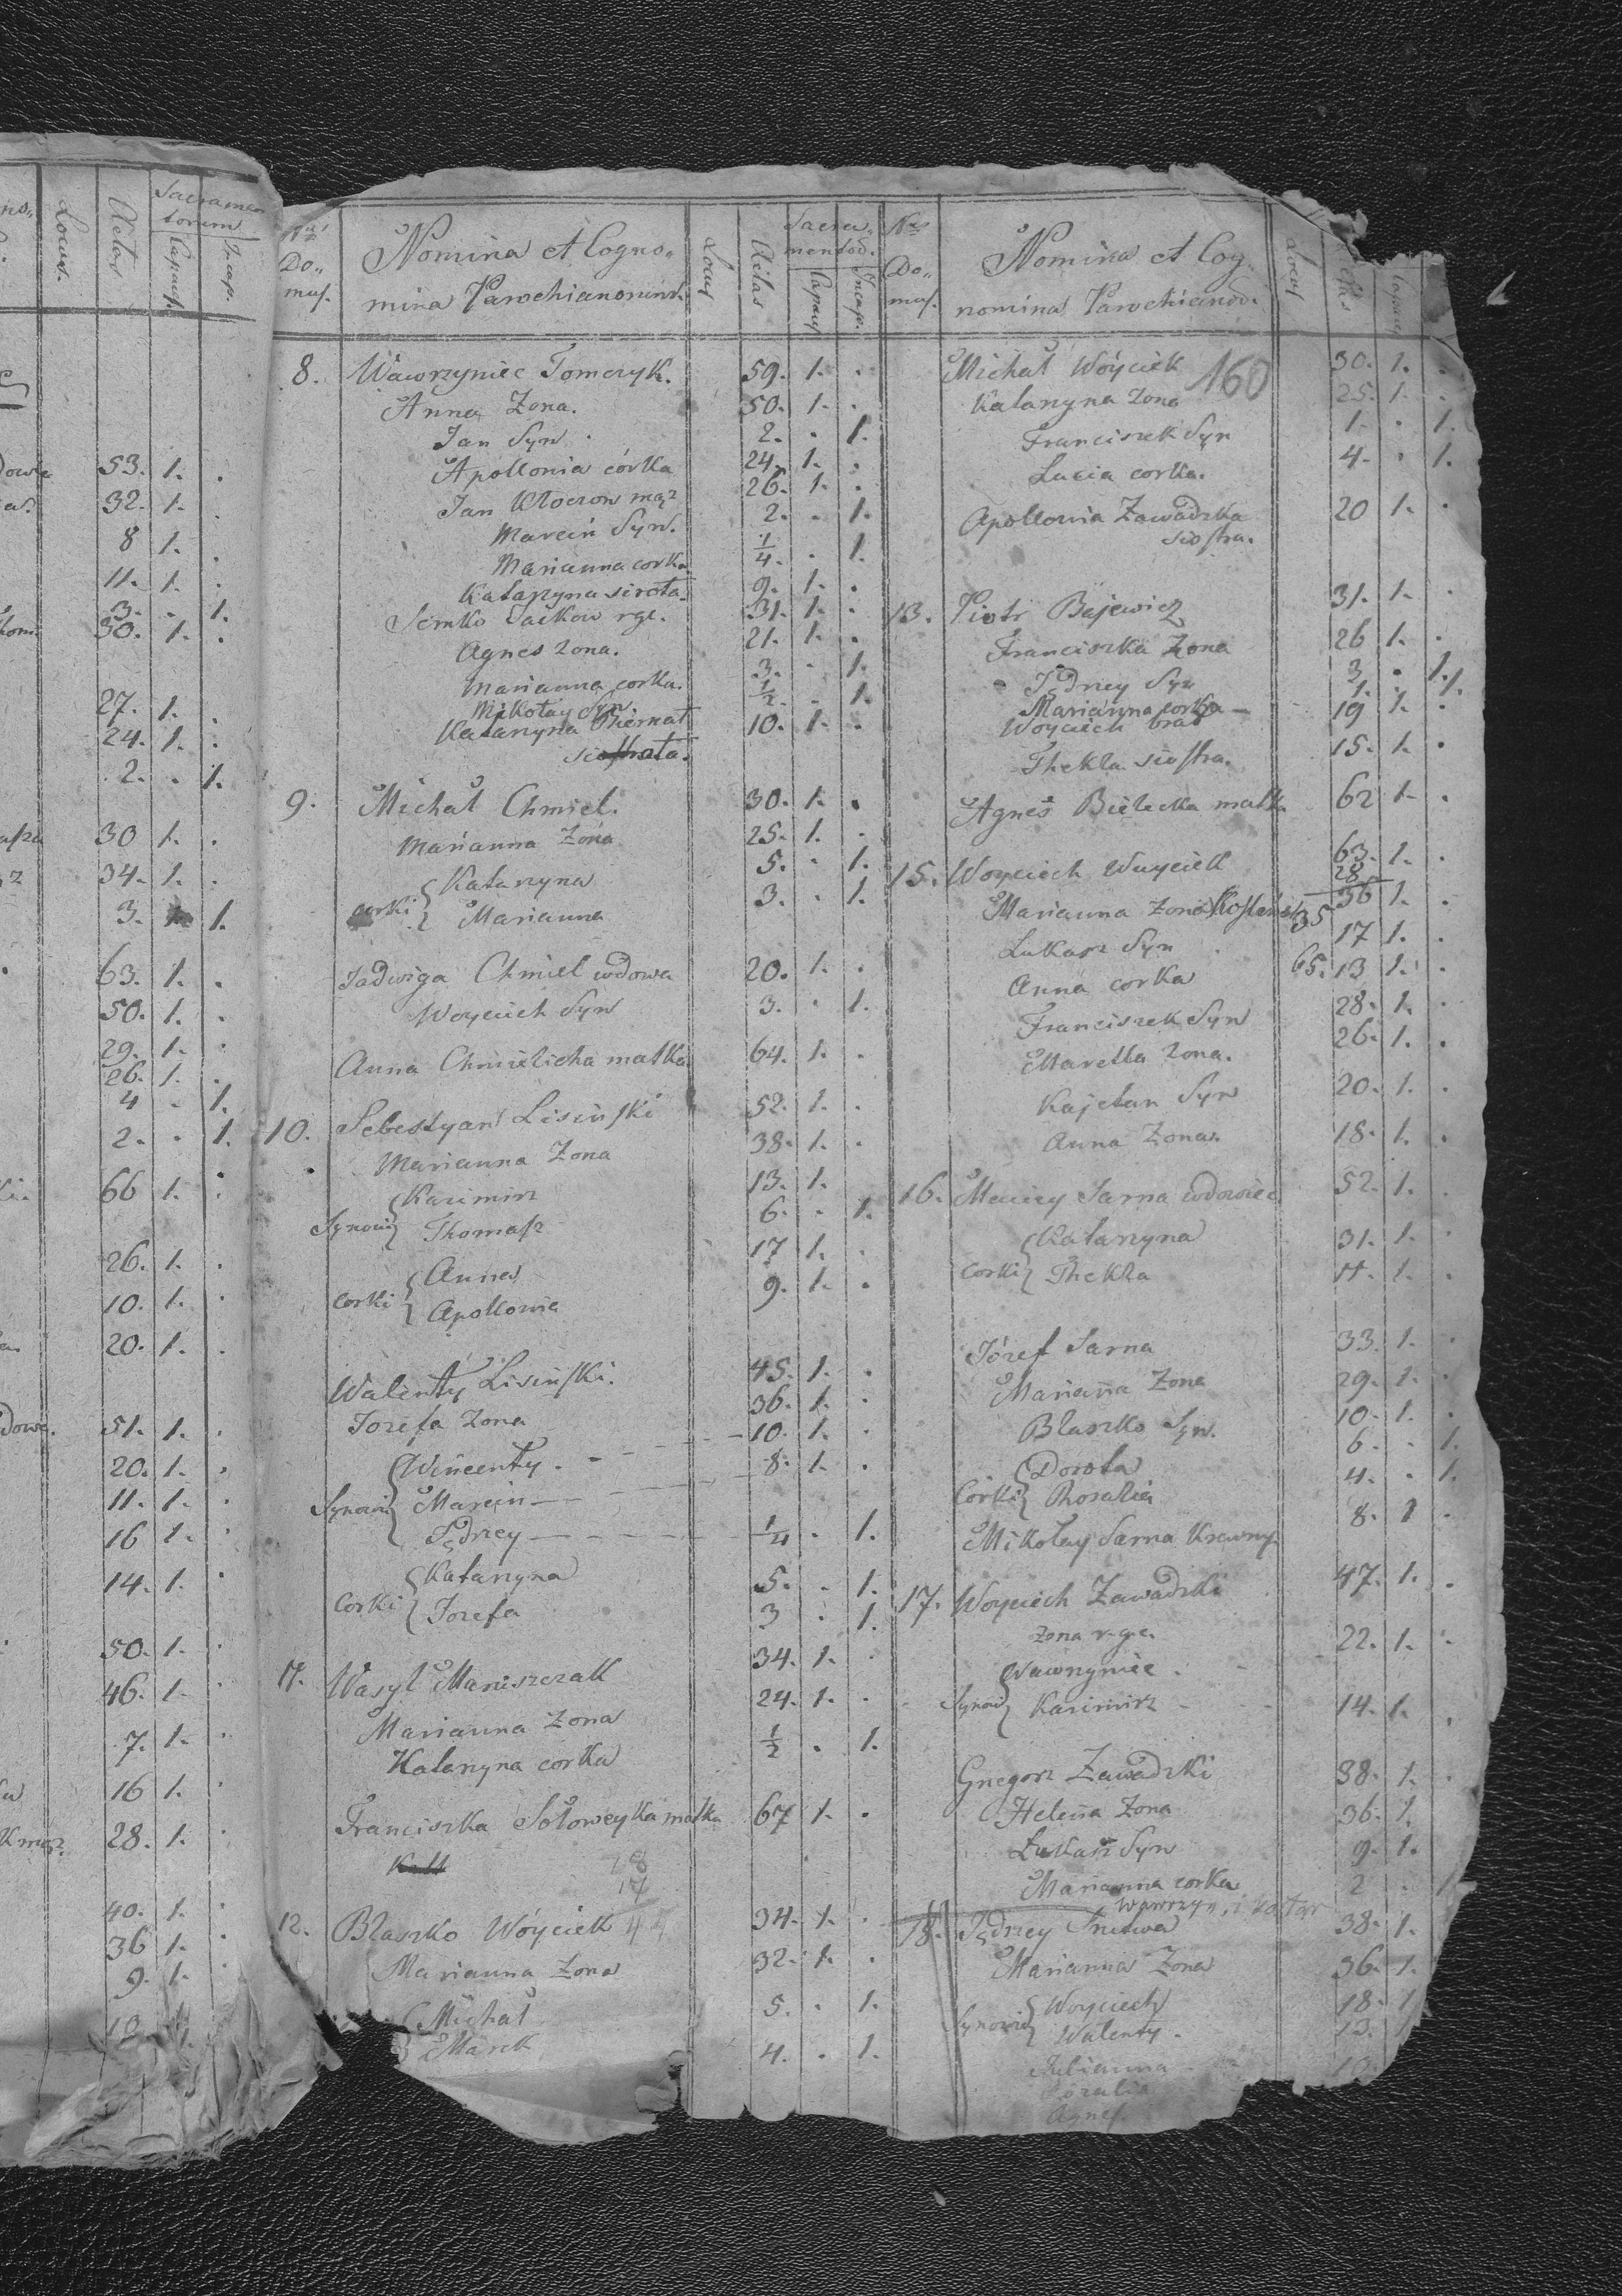 Locus.
Aetas
Sacramen
torum
Capac.
Incap.
53. 1. .
32. 1. .
8 1. .
11. 1. .
3. . 1.
30. 1. .
27. 1. .
24. 1. .
2. . 1.
30 1. .
34. 1. .
3. 1.
63. 1. .
50. 1. .
29. 1. .
26. 1. .
4 . 1.
2. . 1.
66 1. .
26. 1. .
10. 1. .
20. 1. .
51. 1. .
20. 1. .
11. 1. .
16 1. .
14. 1. .
50. 1. .
46. 1. .
7. 1. .
16 1. .
28. 1. .
40. 1. .
36 1. .
9. 1. .
Nus
Do„
mus.
Nomina et Cogno„
mina Parochianorum.
Locus
Aetas
Sacra„
mentor.
Capac.
Incap.
8. Wawrzyniec Tomczyk. 59. 1. .
Anna Zona. 50. 1. .
Jan Syn . 2. . 1.
Apollonia córka 24. 1. .
Jan Kłoczow mąz 26. 1. .
Marcin Syn. 2. . 1.
Marianna corka 1/4. . 1.
Katarzyna sirota. 9. 1. .
Semko Sackow rgr. 31. 1. .
Agnes zona. 21. 1. .
Marianna corka. 3. . 1.
Mikołay Syn. 1/2. . 1.
Katarzyna Biernat 10. 1. .
9. Michał Chmiel. 30. 1. .
Marianna Zona 25. 1. .
Katarzyna 5. . 1.
corki Marianna 3. . 1.
Jadwiga Chmiel wdowa 20. 1. .
Woyciech Syn 3. . 1.
Anna Chmielicha matka 64. 1. .
10. Sebestyan Lisinski 52. 1. .
Marianna Zona 38. 1. .
Kazimirz 13. 1.
Synowi Thomasz 6. . 1.
Anna 17 1. .
corki Apollonia 9. 1. .
Walenty Lisinski. 45. 1. .
Jozefa Zona 36. 1. .
Wincenty 10. 1. .
Synowi Marcin 8. 1. .
Jędrzey 1/4 . 1.
Katarzyna 5. . 1.
Corki Jozefa 3 . 1.
11. Wasyl Maniszczak 34. 1. .
Marianna Zona 24. 1. .
Katarzyna corka 1/2 . 1.
Franciszka Sołoweyka matka 67 1. .
12. Błaszko Wóyciek 34. 1. .
Marianna Zona 32. 1. .
Michał 5. . 1.
Marek 4. . 1.
Nus
Do„
mus.
Nomina et Cog„
nomina Parochianor.
Locus
Capac
Michał Wóyciek 160 30. 1. .
Katarzyna zona 25. 1. .
Franciszek Syn 1. . 1.
Lucia corka. 4. . 1.
Apollonia Zawadzka 20 1. .
siostra.
13. Piotr Bajewicz 31. 1. .
Franciszka Zona 26 1. .
Jędrzey Syn 3 . 1.
Marianna corka 1. . 1.
Woyciech brat 19 1. .
Thekla siostra. 15. 1. .
Agnes Bielecka matka 62 1. .
15. Woyciech Wuyciek 63. 1. .
28
Marianna Zona 35 36 1. .
Lukasz Syn 17 1. .
Anna corka 65. 13 1. .
Franciszek Syn 28. 1. .
Marella zona. 26. 1. .
Kajetan Syn 20. 1. .
Anna Zona. 18. 1. .
16. Maciey Sarna wdowiec 52. 1. .
Katarzyna 31. 1. .
Corki Thekla 11. 1. .
Józef Sarna 33. 1. .
Marianna Zona 29. 1. .
Błaszko Syn. 10. 1. .
Dorota 6. . 1.
Córki Rosalia 4. . 1.
Mikołay Sarna Krewny 8. 1 .
17. Woyciech Zawadzki 47. 1. .
zona r.g.c.
Wawrzyniec 22. 1. .
Synowi Kazimirz 14. 1. .
Grzegorz Zawadzki 38. 1. .
Helena Zona 36. 1.
Łukasz Syn 9. 1.
Marianna corka 2 . 1
Wawrzyn.
18. Jędrzey 38. 1.
Marianna Zona 36. 1.
Woyciech 18. 1
Synowi Walenty. 13. 1
Julianna
Rozalia
Agnes